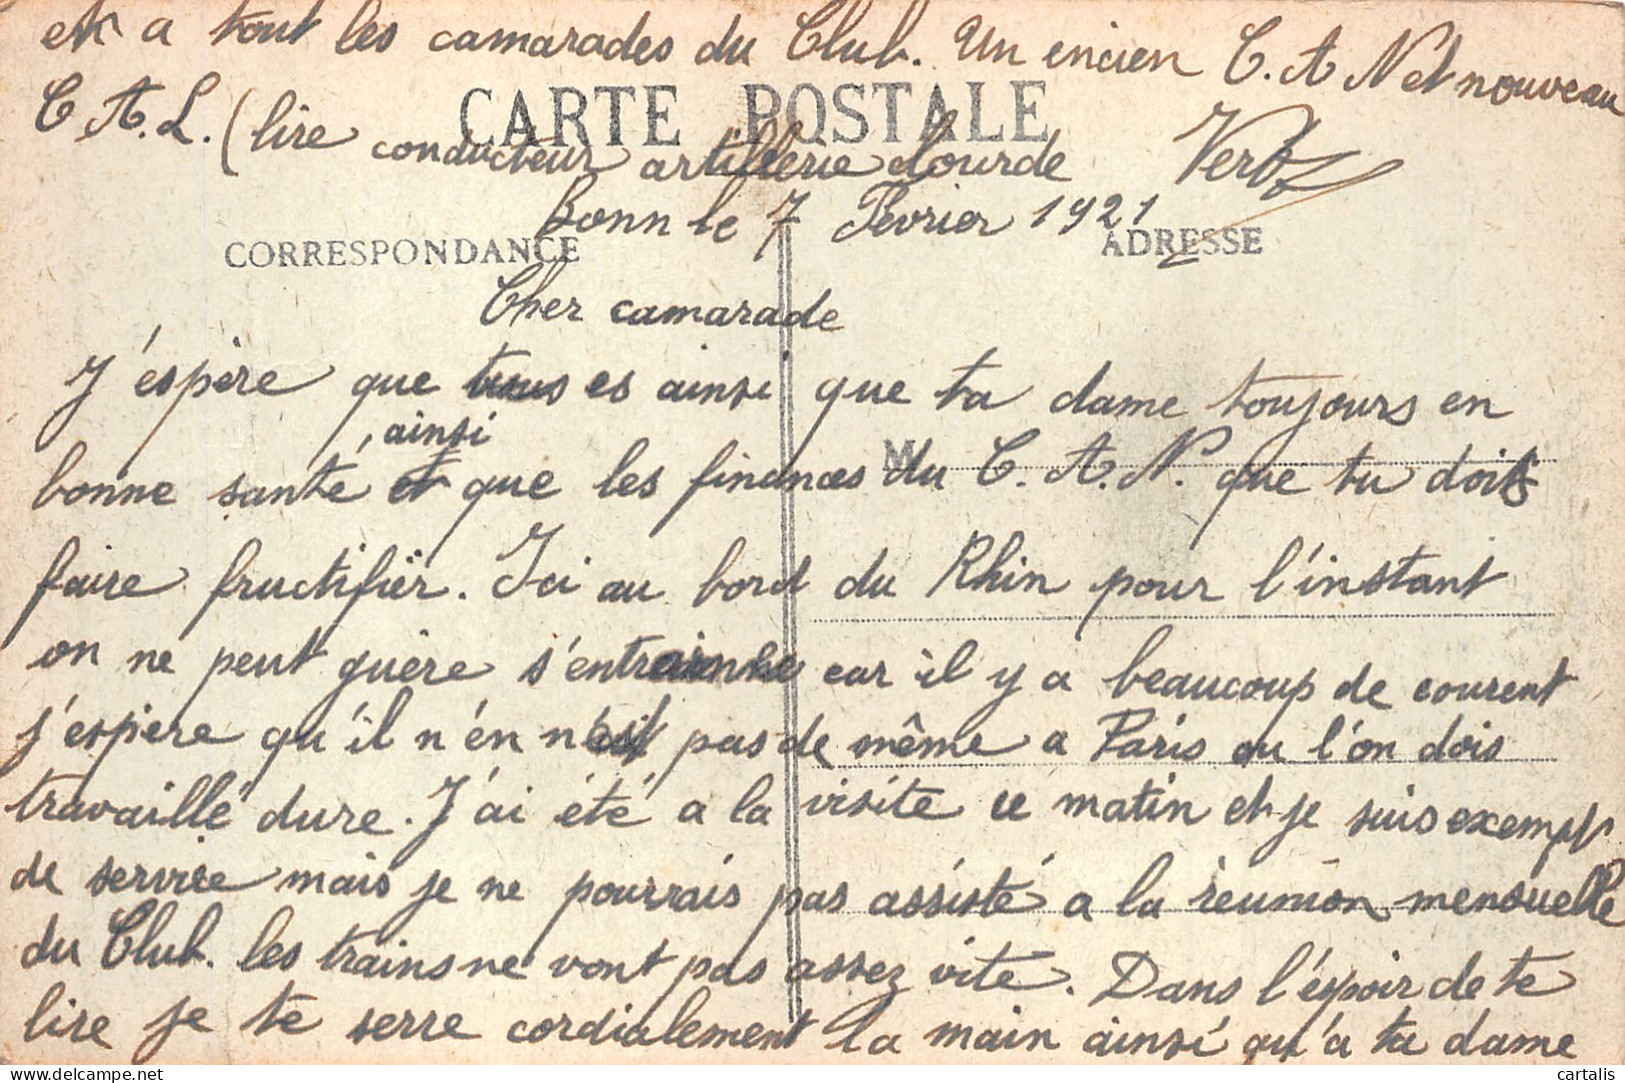 et a tout les camarades du Club. Un encien C. A N et nouveau
C A. L. (lire conducteur artillerie lourde Verb
CARTE POSTALE
Bonn le 7 Fevrier 1921
CORRESPONDANCE
ADRESSE
Cher camarade
J'éspère que es ainsi que ta dame toujours en
, ainsi
bonne santé et que les finances du C. A. N. que tu doits
M
faire fructifiër. Ici au bord du Rhin pour l'instant
on ne peut guère s'entrainée car il y a beaucoup de courent
j'espère qu'il n'én n'est pas de même a Paris ou l'on dois
travaillé dure. J'ai été a la visite ce matin et je suis exempt
de service mais je ne pourrais pas assisté a la reunion mensuelle
du Club. les trains ne vont pas assez vite. Dans l'éspoir de te
lire je te serre cordialement la main ainsi qu'a ta dame
cartalis